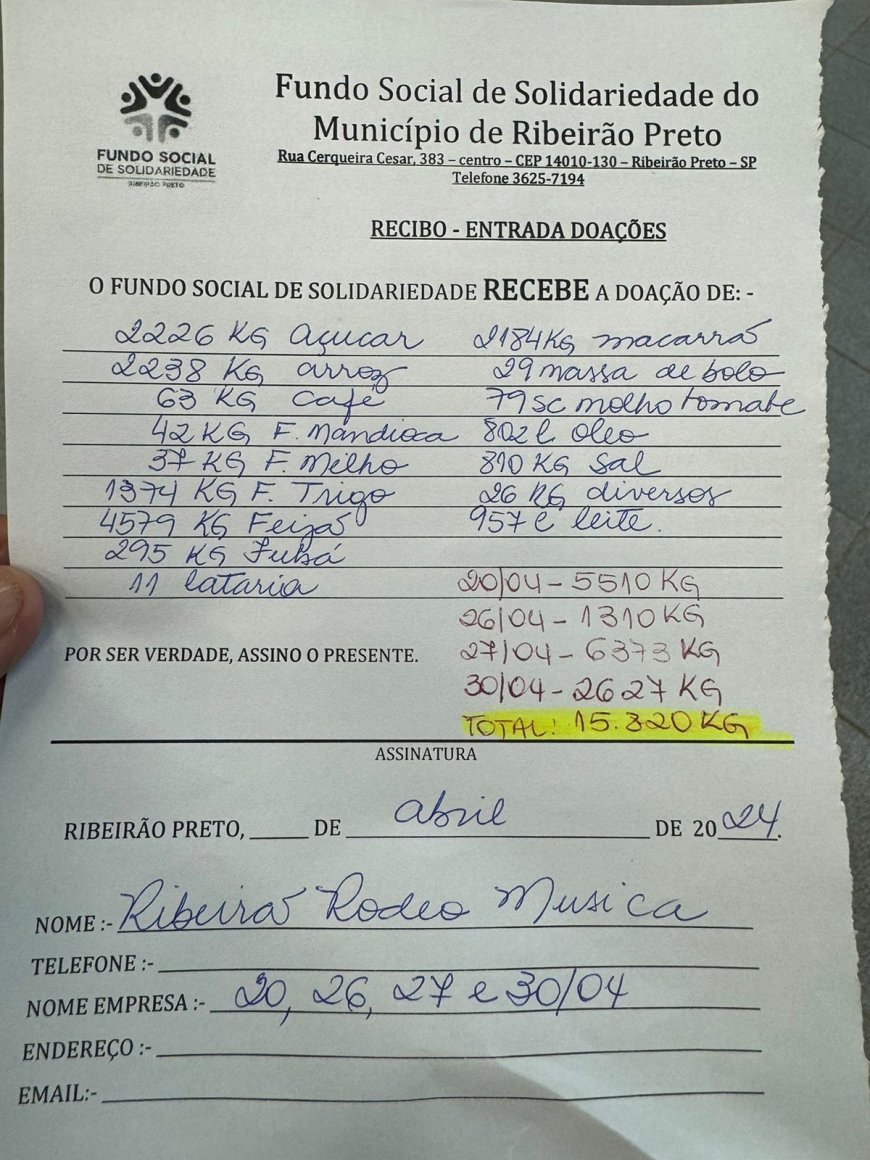 FUNDO SOCIAL
DE SOLIDARIEDADE
RIBEIRÃO PRETO
Fundo Social de Solidariedade do
Município de Ribeirão Preto
Rua Cerqueira Cesar, 383 – centro – CEP 14010-130 – Ribeirão Preto – SP
Telefone 3625-7194
RECIBO - ENTRADA DOAÇÕES
O FUNDO SOCIAL DE SOLIDARIEDADE RECEBE A DOAÇÃO DE: -
2226 KG Açucar 2184KG macarrão
2238 KG arroz 29 massa de bolo
63 KG Café 79 sc molho tomate
42 KG F. Mandioca 802 l oleo
37 KG F. Milho 810 KG sal
1374 KG F. Trigo 26 KG diversos
4579 KG Feijão 957 l leite.
295 KG Fubá
11 lataria 20/04 - 5510 KG
26/04 - 1310 KG
POR SER VERDADE, ASSINO O PRESENTE. 27/04 - 6373 KG
30/04 - 2627 KG
TOTAL: 15.820 KG
ASSINATURA
RIBEIRÃO PRETO, ______ DE abril DE 2024.
NOME :- Ribeirão Rodeo Musica
TELEFONE :-
NOME EMPRESA :- 20, 26, 27 e 30/04
ENDEREÇO :-
EMAIL:-